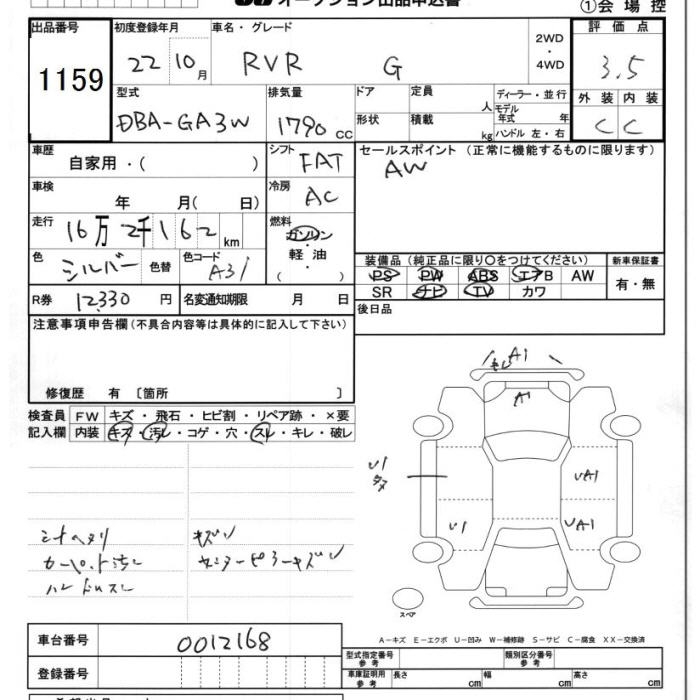 オークション出品申込書
①会場控
出品番号 初度登録年月 車名・グレード 2WD・4WD 評価点
1159 22 10月 RVR G 3.5
型式 排気量 ドア 定員 人 ディーラー・並行 外装 内装
DBA-GA3W 1790cc 形状 積載 kg モデル年式 年 ハンドル 左・右 C C
車歴 シフト セールスポイント（正常に機能するものに限ります）
自家用・( ) FAT AW
車検 年 月( 日) 冷房 AC
走行 16万2千162km 燃料 ガソリン・軽油・( )
色 シルバー 色替 色コード A31
装備品（純正品に限り○をつけてください） 新車保証書
PS PW ABS エアB AW 有・無
SR ナビ TV カワ
R券 12,330円 名変通知期限 月 日
後日品
注意事項申告欄(不具合内容等は具体的に記入して下さい)
修復歴 有 〔箇所 〕
検査員記入欄 FW キズ・飛石・ヒビ割・リペア跡・×要
内装 キズ・汚レ・コゲ・穴・スレ・キレ・破レ
A1
A1
U1
UA1
U1
UA1
シートヘタリ キズ
カーペット汚レ センターピラーキズ
ハンドルスレ
スペア
A－キズ E－エクボ U－凹み W－補修跡 S－サビ C－腐食 XX－交換済
車台番号 0012168
登録番号
型式指定番号 参考 類別区分番号 参考
車庫証明用 参考 長さ cm 幅 cm 高さ cm